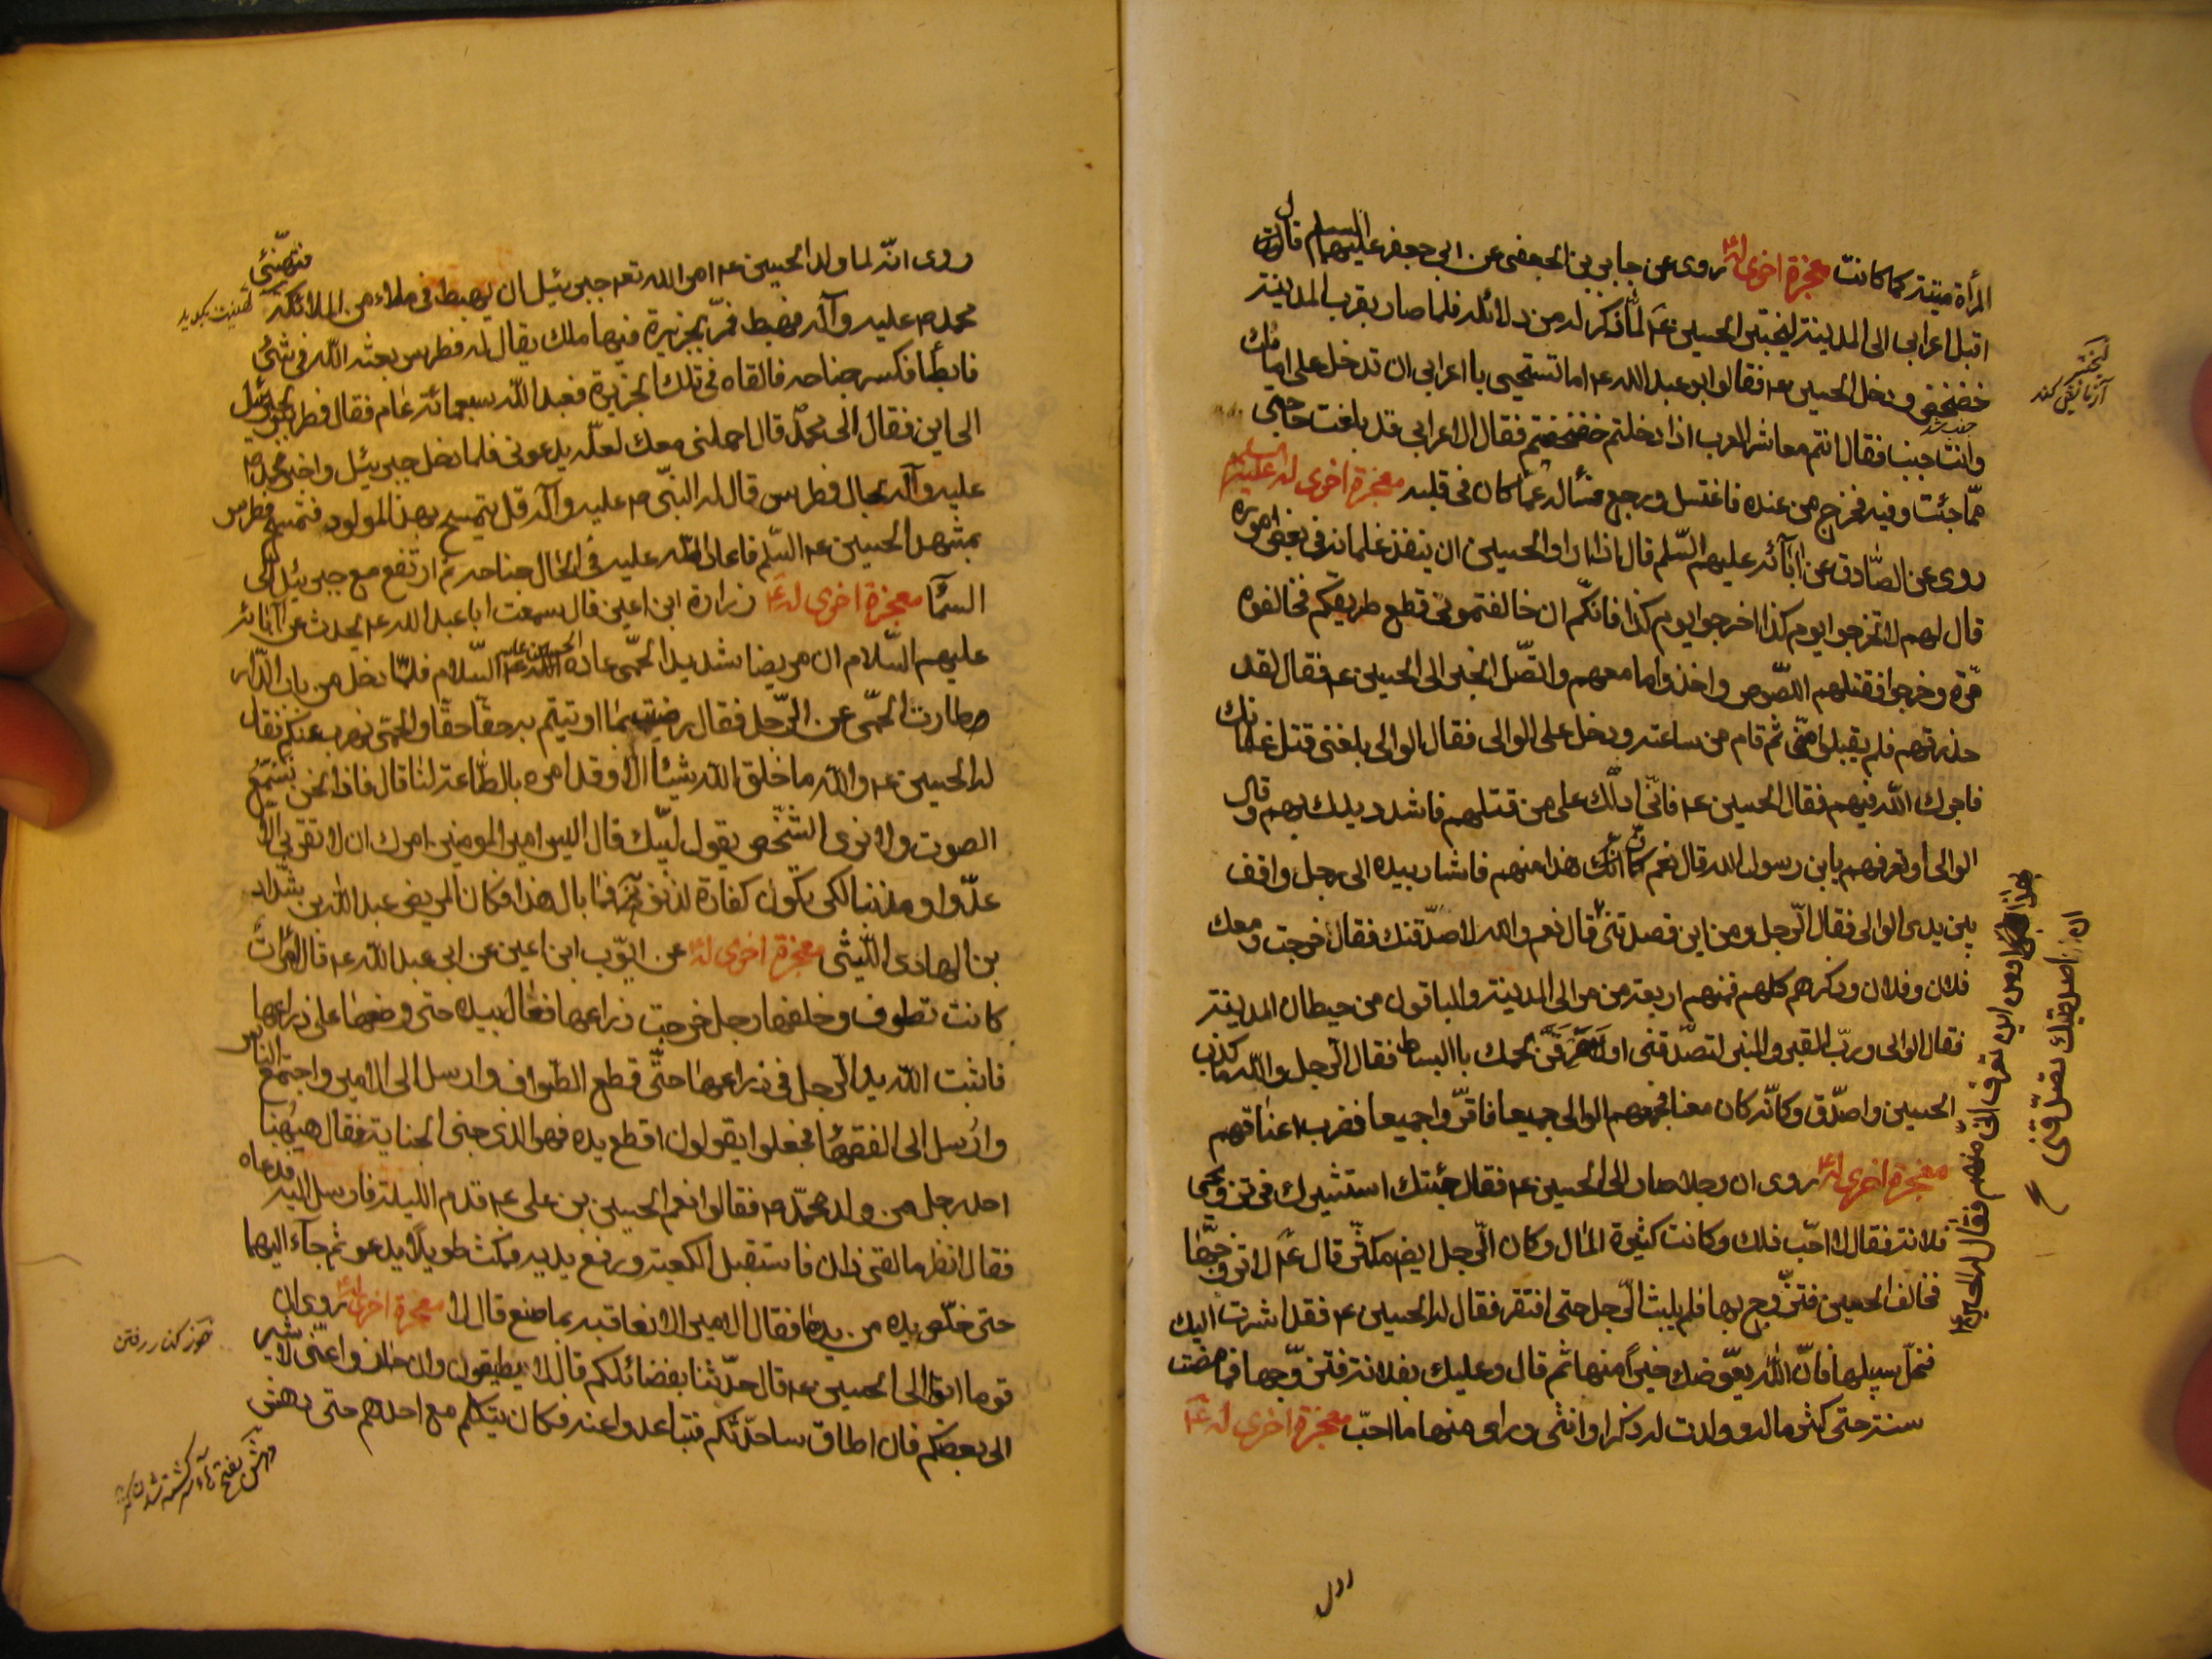 المرأة ميتة كما كانت معجزة اخرى له ع روى عن جابر بن الجعفى عن ابى جعفر عليهما السلم قال
اقبل اعرابى الى المدينة ليختبر الحسين ع لما ذكر له من دلائله فلما صار بقرب المدينة
خضخض و دخل الحسين ع فقال ابو عبد الله ع اما تستحيى يا اعرابى ان تدخل على امامك
وانت جنب فقال انتم معاشر العرب اذا دخلتم خضخضتم فقال الاعرابى قد بلغت حاجتى
مما جئت وفيه فخرج من عنده فاغتسل ورجع فسأله عما كان فى قلبه معجزة اخرى له عليه السلم
روى عن الصادق عن آبآئه عليهم السلم قال اذا اراد الحسين ان ينفذ غلمانه فى بعض اموره
قال لهم لا تخرجوا يوم كذا اخرجوا يوم كذا فانكم ان خالفتمونى قطع طريقكم فخالفوه
مرة وخرجوا فقتلهم اللصوص واخذوا ما معهم واتصل الخبر الى الحسين ع فقال لقد
حذرتهم فلم يقبلوا منى ثم قام من ساعته ودخل على الوالى فقال الوالى بلغنى قتل غلمانك
فاجرك الله فيهم فقال الحسين ع فانى ادلك على من قتلهم فاشدد يدك بهم قال
الوالى أو تعرفهم يا بن رسول الله قال نعم كما انك هذا منهم فاشار بيده الى رجل واقف
بين يدى الوالى فقال الرجل ومن اين قصدتنى قال نعم والله لاصدقنك فقال خرجت ومعك
فلان وفلان وذكرهم كلهم فمنهم اربعة من موالى المدينة والباقون من حيطان المدينة
فقال الوالى ورب القبر والمنبر لتصدقنى او لحمك بالسياط فقال الرجل والله ما كذب
الحسين واصدق وكانه كان معنا فجمعهم الوالى جميعا فاقروا جميعا فضرب اعناقهم
معجزة اخرى له ع روى ان رجلا صار الى الحسين ع فقال جئتك استشيرك فى تزويجى
فلانة فقال لا احب ذلك وكانت كثيرة المال وكان الرجل ايضا مكثر قال ع لا تزوجها
فخالف الحسين فتزوج بها فلم يلبث الرجل حتى افتقر فقال له الحسين ع فقد اشرت اليك
فخل سبيلها فان الله يعوضك خيرا منها ثم قال وعليك بفلانة فتزوجها فما مضت
سنة حتى كثر ماله وولدت له ذكرا وانثى وراى منها ما احب معجزة اخرى له ع
ان اصدقتك تصدقنى
روى انه لما ولد الحسين ع امر الله تع جبرئيل ان يهبط فى ملاء من الملائكة فتهنئى
محمد ص عليه وآله فهبط فمر بجزيرة فيها ملك يقال له فطرس بعثه الله فى شئ
فابطأ فكسر جناحه فالقاه فى تلك الجزيرة فعبد الله سبعمائة عام فقال فطرس لجبرئيل
الى اين فقال الى محمد قال احملنى معك لعله يدعونى فلما دخل جبرئيل واخبر محمد ص
عليه وآله بحال فطرس قال له النبى ص عليه وآله قل يتمسح بهذا المولود فتمسح فطرس
بمشهد الحسين ع السلم فاعاد الله عليه فى الحال جناحه ثم ارتفع مع جبرئيل الى
السمآ معجزة اخرى له ع زرارة ابن اعين قال سمعت ابا عبد الله ع يحدث عن آبائه
عليهم السلام ان مريضا شديد الحمى عاده الحسين عليه السلام فلما دخل من باب الدار
طارت الحمى عن الرجل فقال رضيت بما اوتيتم به حقا حقا والحمى تهرب عنكم فقال
له الحسين ع والله ما خلق الله شيئا الا وقد امره بالطاعة لنا قال فاذا نحن نسمع
الصوت ولا نرى الشخص يقول لبيك قال اليس امير المومنين امرك ان لا تقربى الا
عدوا او مذنبا لكى تكون كفارة لذنوبه فما بال هذا فكان المريض عبد الله بن شداد
بن الهادى الليثى معجزة اخرى له ع عن ايوب ابن اعين عن ابى عبد الله ع قال امرأة
كانت تطوف وخلفها رجل خرجت ذراعها فقال بيده حتى وضعها على ذراعها
فاثبت الله يد الرجل فى ذراعها حتى قطع الطواف وارسل الى الامير واجتمع الناس
وارسل الى الفقهآ فجعلوا يقولون اقطع يده فهو الذى جنى الجناية فقال هيهنا
احد رجل من ولد محمد ص فقالوا نعم الحسين بن على ع قدم الليلة فارسل اليه فدعاه
فقال انظر ما لقى ذان فاستقبل الكعبة ورفع يديه فمكث طويلا يدعو ثم جآء اليهما
حتى خلص يده من يدها فقال الامير الا نعاقبه بما صنع قال لا معجزة اخرى له ع روى ان
قوما اتوا الى الحسين ع قال حدثنا بفضائلكم قال لا تطيقون وانحازوا عنى لاشير
الى بعضكم فان اطاق ساحدثكم فتباعدوا عنه فكان يتكلم مع احدهم حتى دهش